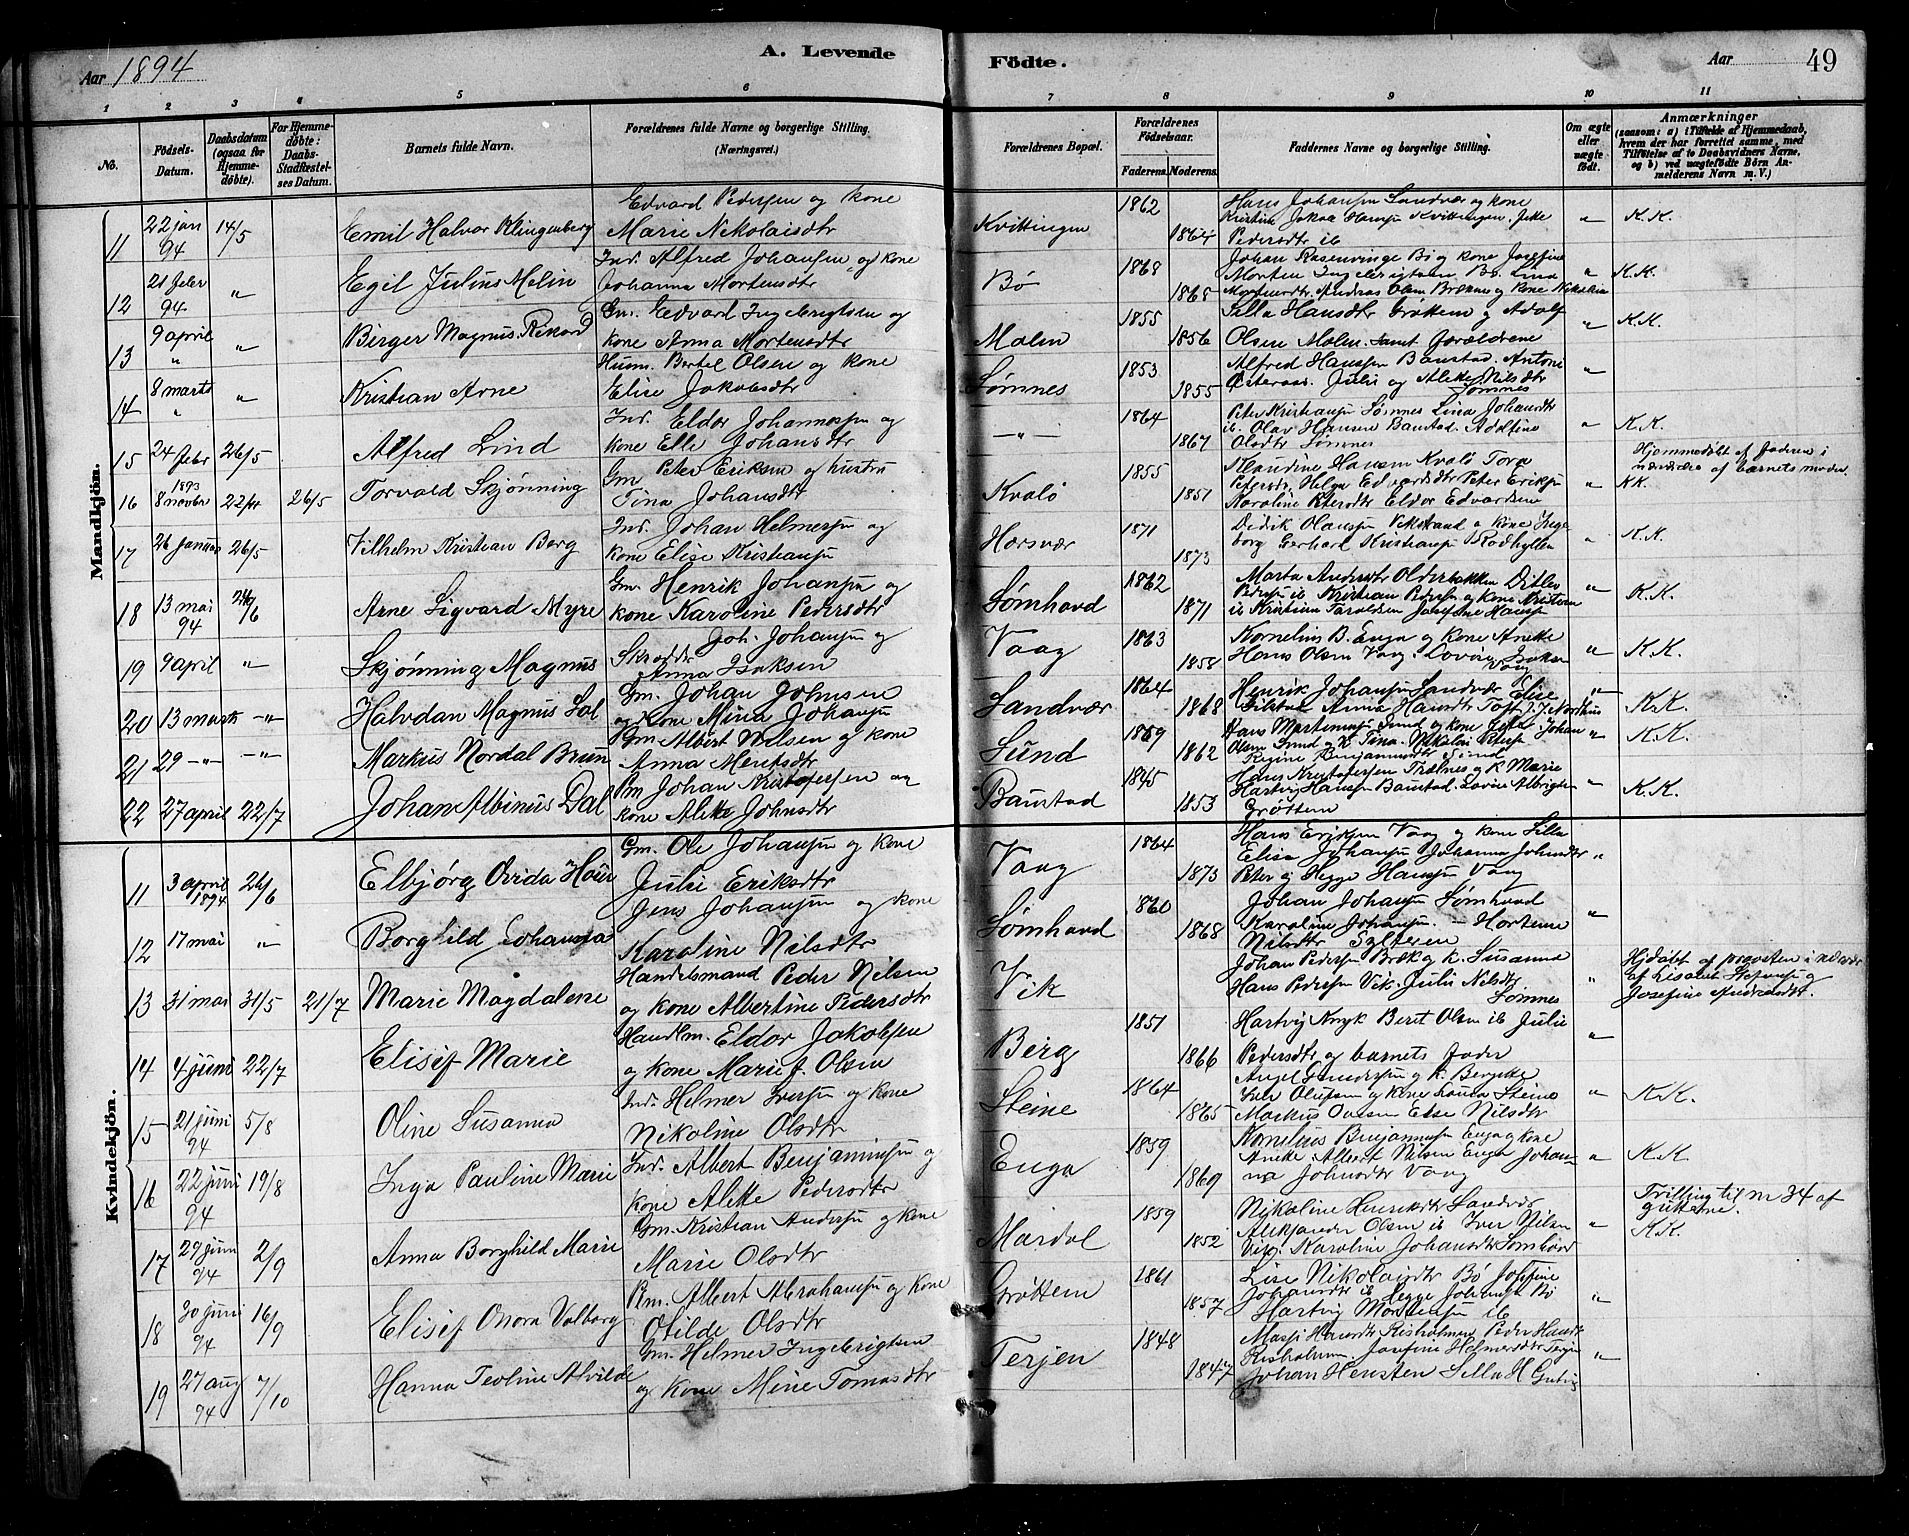 A. Levende
Fødte.
Aar 1894
Aar
49
1 2 3 4 5 6 7 8 9 10 11
No.
Fødsels-
Datum.
Daabsdatum
(ogsaa for
Hjemme-
døbte).
For Hjemme-
døbte:
Daabs-
Stadfæstel-
ses Datum.
Barnets fulde Navn.
Forældrenes fulde Navne og borgerlige Stilling.
(Næringsvei.)
Forældrenes Bopæl.
Forældrenes
Fødselsaar.
Faderens. Moderens.
Faddernes Navne og borgerlige Stilling.
Om ægte
eller
uægte
født.
Anmærkninger
(saasom: a) i Tilfælde af Hjemmedaab,
hvem der har forrettet samme, med
Tilføielse af to Daabsvidners Navne,
og b) ved uægtefødte Børn An-
melderens Navn m. V.)
Mandkjön.
11 22 jan 94 14/5 Emil Halvor Klingenberg
Edvard Pedersen og kone
Marie Nikolaisdtr
Kvittingen 1862 1864
Hans Johansen Sandvær og kone
Kristine Jakob Hansen Kvittingen. Jette
Pedersdtr ib " K.K.
12 21 febr 94 " Egil Julius Melin
Ind. Alfred Johansen og kone
Johanna Mortensdtr
Bø 1868 1868
Johan Rasenvinge Bø og kone Josefine
Morten Ingebrigtsen Bø. Lina
Mortensdtr Andreas Olsen Brækan og kone Nikoline " K.K.
13 9 april " " Birger Magnus Rikard
Gm. Edvard Ingebrigtsen og
kone Anna Mortensdtr
Molen 1855 1856
Silla Hansdtr Grøttem og Adolf
Olsen Molen. Samt forældrene " K.K.
14 8 marts " " Kristian Arne
Husm. Bertel Olsen og kone
Elise Jakobsdtr
Sømnes 1853 1855
Alfred Hansen Baustad. Antoni
Østeraas. Julie og Alette Nilsdtr
Sømnes "
15 24 febr 26/5 Alfred Lind
Ind. Eldor Johannesen og
kone Elli Johansdtr
— " — 1864 1867
Peter Kristiansen Sømnes Lina Johansdtr
ib. Olav Hansen Baustad. Adolfine
Olsdtr Sømnes " K.K.
16 1893 8 novbr 22/11 26/5 Torvald Skjønning
Gm Peter Eriksen og hustru
Tina Johansdtr
Kvalø 1855 1851
Klaudine Hansen Kvalø Tora
Petersdtr, Helga Edvardsdtr Peter Eriksen
Karoline Petersdtr Eldor Edvardsen "
Hjemmedøbt af faderen i
nærværelse af barnets moder.
KK.
17 26 januar 26/5 Vilhelm Kristian Berg
Ind. Johan Helmersen og
kone Elise Kristiansen
Horsvær 1871 1873
Didrik Olausen Vikstrand og kone Inge
borg Gerhard Kristiansen Rødhyllen " K.K.
18 13 mai 94 24/6 Arne Sigvard Myre
Gm. Henrik Johansen og
kone Karoline Pedersdtr
Sømhovd 1862 1871
Marta Andersdtr Olderbakken Ditlev
Pedersen ib Kristian Pedersen og kone Kristine
ib Kristian Taraldsen Josefine Hansen " K.K.
19 9 april " Skjønning Magnus
Skrædder Joh. Johansen og
Anna Isaksen
Vaag 1863 1858
Kornelius B. Enga og kone Anette
Hans Olsen Vaag. Lovise Isaksen
Vaag " K.K.
20 13 marts — " — Halvdan Magnus Sol
Gm. Johan Johnsen
og kone Mina Johansen
Sandvær 1864 1868
Henrik Johansen Sandvær Elise
Anna Hansdtr Toft J. J. Nordhus " K.K.
21 29 — " — — " — Markus Nordal Brun
Gm. Albert Nilsen og kone
Anna Mentsdtr
Sund 1869 1862
Hans Martinussen Sund og kone Johan
Olsen Sund og k Tina. Nikolai Petersen
Regine Benjaminsdtr Sund " K.K.
22 27 april 22/7 Johan Albinus Dal
Pm Johan Kristofersen og
kone Alette Johnsdtr
Baustad 1845 1853
Hans Kristofersen Trælnes og k. Marie
Hartvig Hansen Baustad. Lovise Albrigtsen
Grøttem " K.K.
Kvindekjön.
11 3 april 1894 24/6 Elbjørg Ovida
Gm. Ole Johansen og kone
Julie Eriksdtr
Vaag 1864 1873
Hans Eriksen Vaag og kone Silla
Elisa Johansen Johanna Johnsdtr
Peter og Hegge Hansen Vaag "
12 17 mai " Borghild Johanna
Jens Johansen og kone
Karoline Nilsdtr
Sømhovd 1860 1868
Johan Johansen Sømhovd
Karoline Johansen — Hortense
Nilsdtr Sylteren "
13 31 mai 31/5 21/7 Marie Magdalene
Handelsmand Peder Nilsen
og kone Albertine Pedersdtr
Vik
Johan Pedersen Brøk og k. Susanna
Hans Pedersen Vik. Julie Nilsdtr
Sømnes "
Hjdøbt af provsten i nærvær
af Lisabet Stefansen og
Josefine Andreasdtr.
14 4 juni 22/7 Elisif Marie
Handlm. Eldor Jakobsen
og kone Marie f. Olsen
Berg 1851 1866
Hartvig Beret Olsen ib Julie
Pedersdtr og barnets fader "
15 21 juni 94 5/8 Oline Susanna
Ind. Helmer Iversen og kone
Nikoline Olsdtr
Steine 1864 1865
Angel og k. Bergitte
Iver Olufsen og kone Lovisa Steine
Markus Olsen Else Nilsdtr " K.K.
16 22 juni 94 19/8 Inga Pauline Marie
Ind. Albert Benjaminsen og
kone Alette Pedersdtr
Enga 1859 1869
Kornelius Benjaminsen Enga og kone
Anette. Albert Nilsen Enga Johan-
na Johnsdtr Vaag " K.K.
17 29 juni 94 2/9 Anna Borghild Marie
Gm. Kristian Andersen og kone
Marie Olsdtr
Mardal 1859 1852
Nikoline Henriksdtr Sandvær
Aleksander Olsen ib Iver Nilsen
Vik. Karoline Johansdtr Sømhovd "
Tvilling til nr 24 af
guttene.
K.K.
18 30 juni 94 16/9 Elisif Onora Valborg
Pm. Albert Abrahamsen og kone
Otilde Olsdtr
Grøttem 1861 1857
Lise Nikolaisdtr Bø Josefine
Johansdtr ib Hegge Johansen Bø
Hartvig Mortensen ib "
19 27 aug 94 7/10 Hanna Teoline Alvilde
Gm. Helmer Ingebrigtsen
og kone Mine Tomasdtr
Terjen 1848 1847
Massi Hansdtr Risholmen Peder Hansen
Risholmen. Josefine Helmersdtr Terjen
Johan Hensten Silla H "